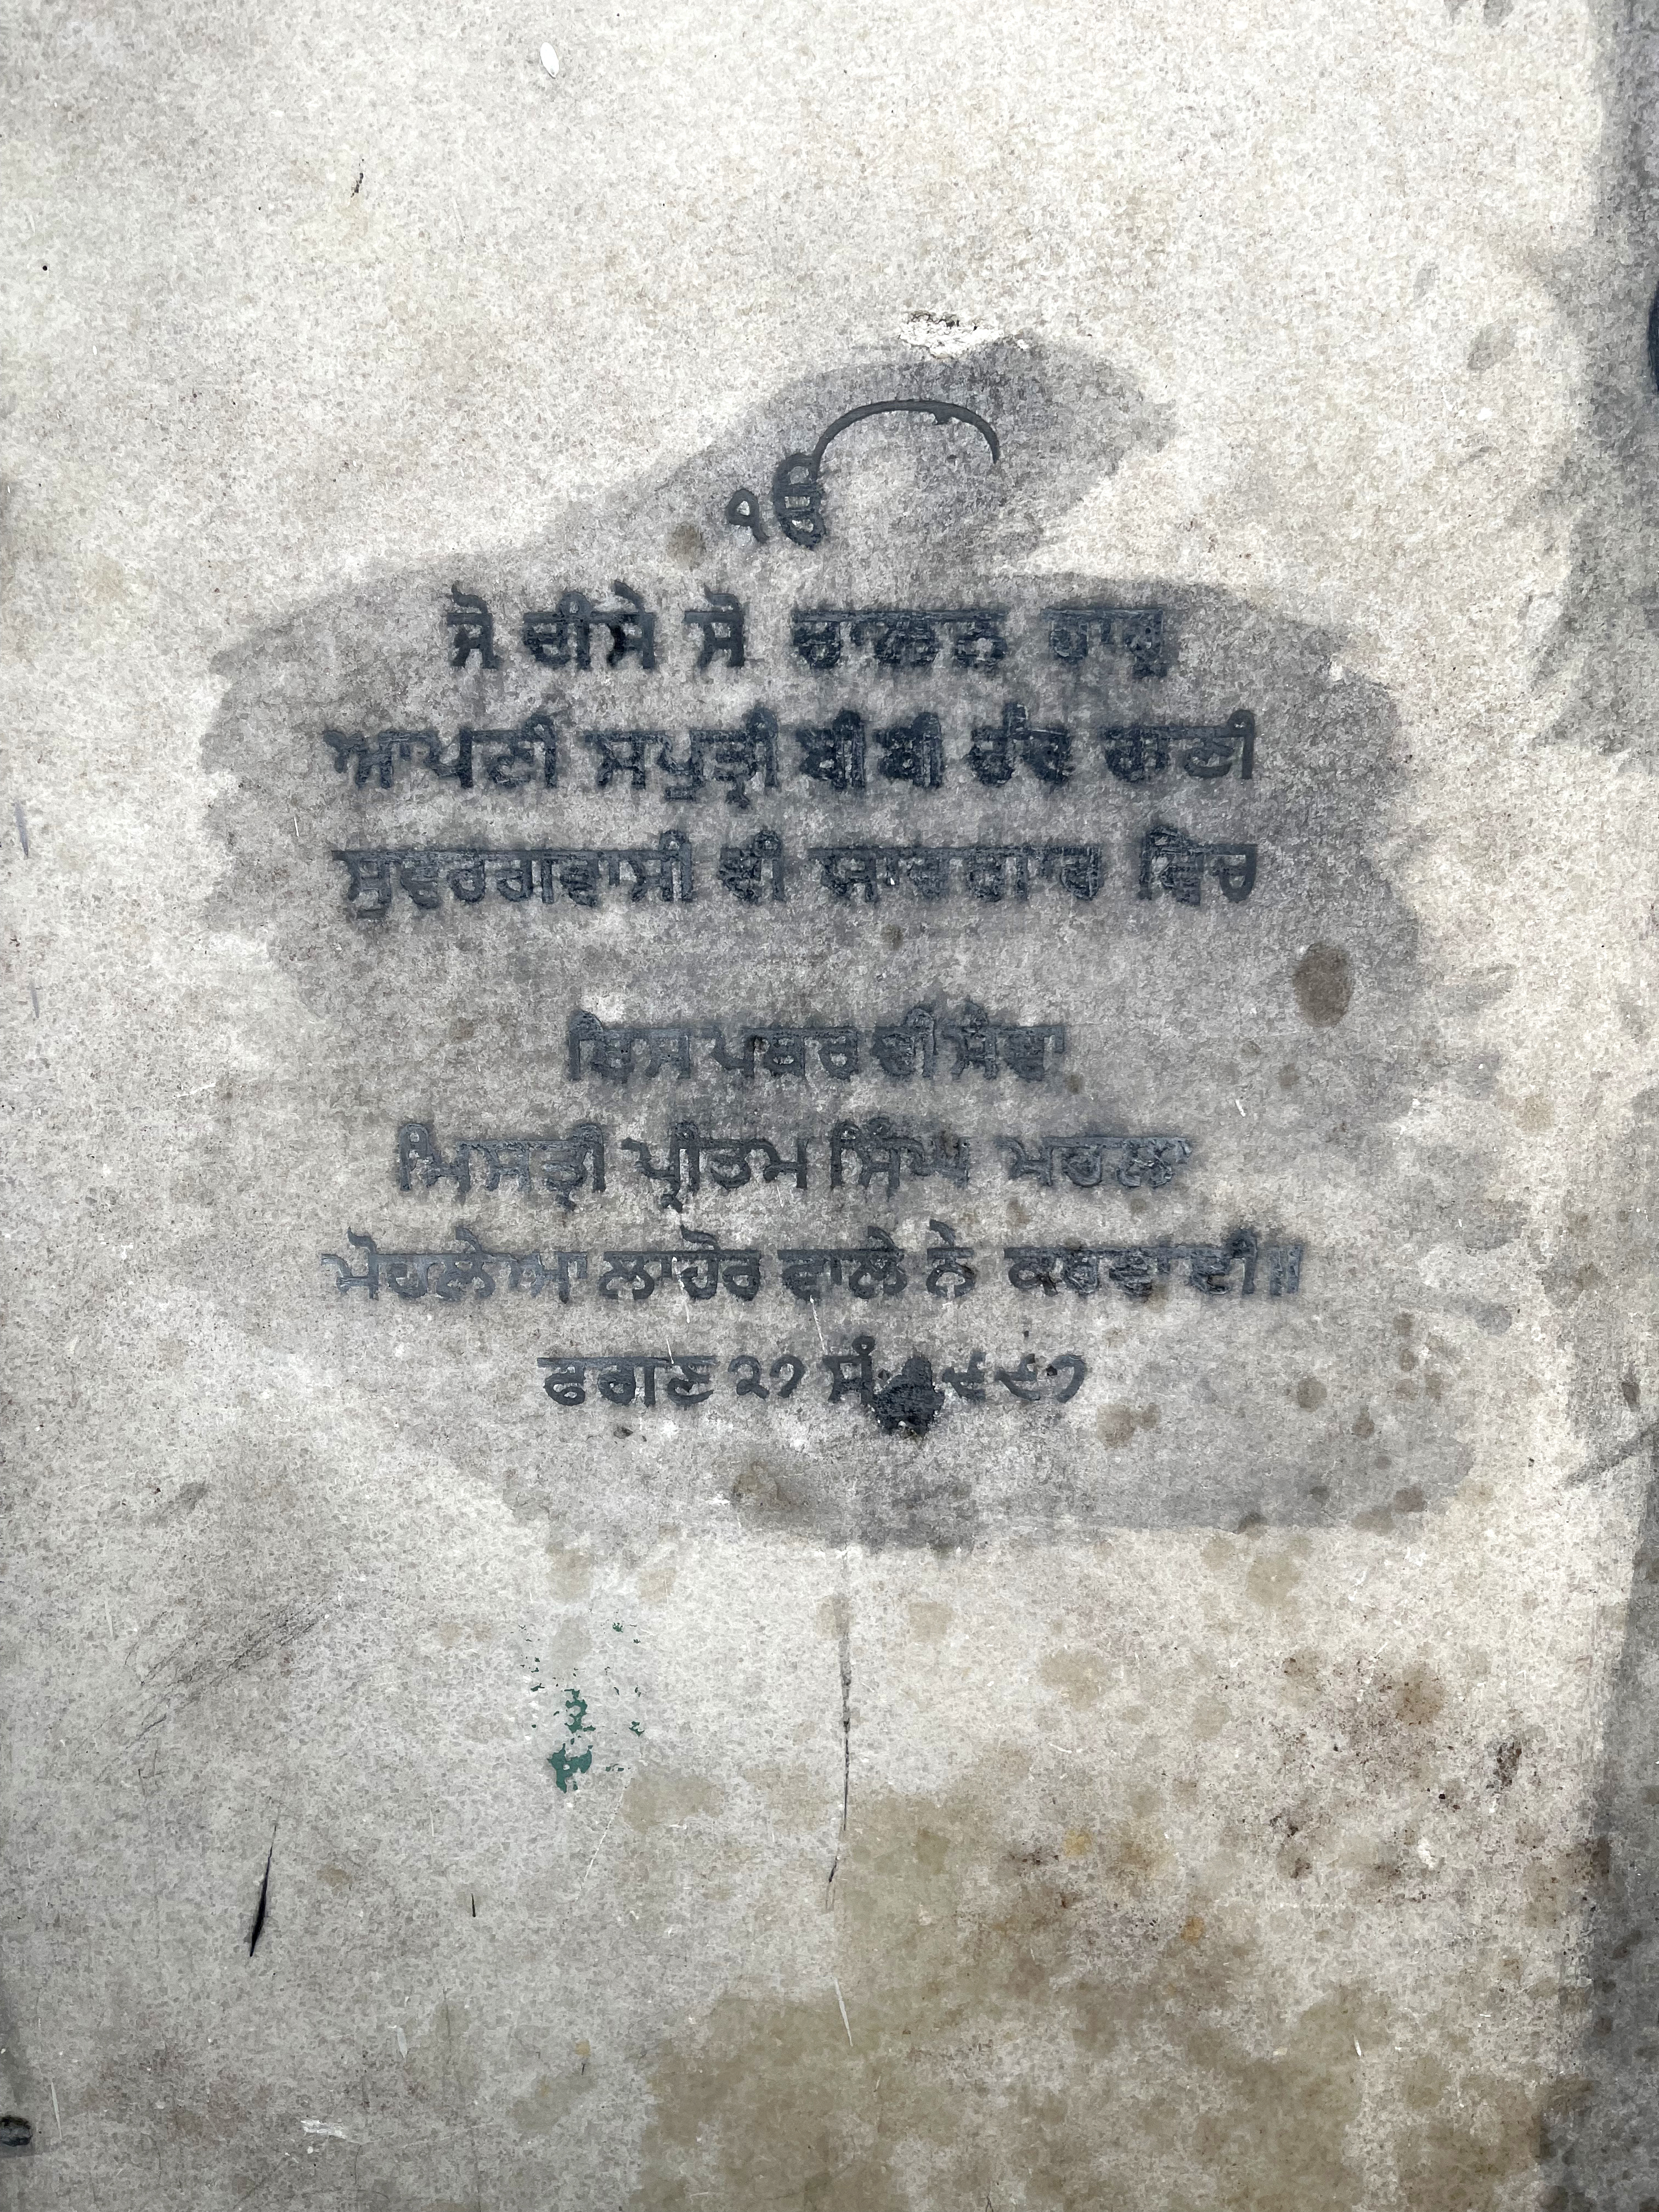 ੴ
ਜੋ ਦੀਸੇ ਸੋ ਚਾਲਨ ਹਾਰੁ
ਆਪਣੀ ਸਪੁਤ੍ਰੀ ਬੀਬੀ ਚੰਦ ਰਾਣੀ
ਸੁਵਰਗਵਾਸੀ ਦੀ ਯਾਦਗਾਰ ਵਿਚ
ਇਸ ਪਥਰ ਦੀ ਸੇਵਾ
ਮਿਸਤ੍ਰੀ ਪ੍ਰੀਤਮ ਸਿੰਘ
ਲਾਹੌਰ ਵਾਲੇ ਨੇ ਕਰਵਾਈ॥
ਫਗਣ ੨੭ ਸੰ